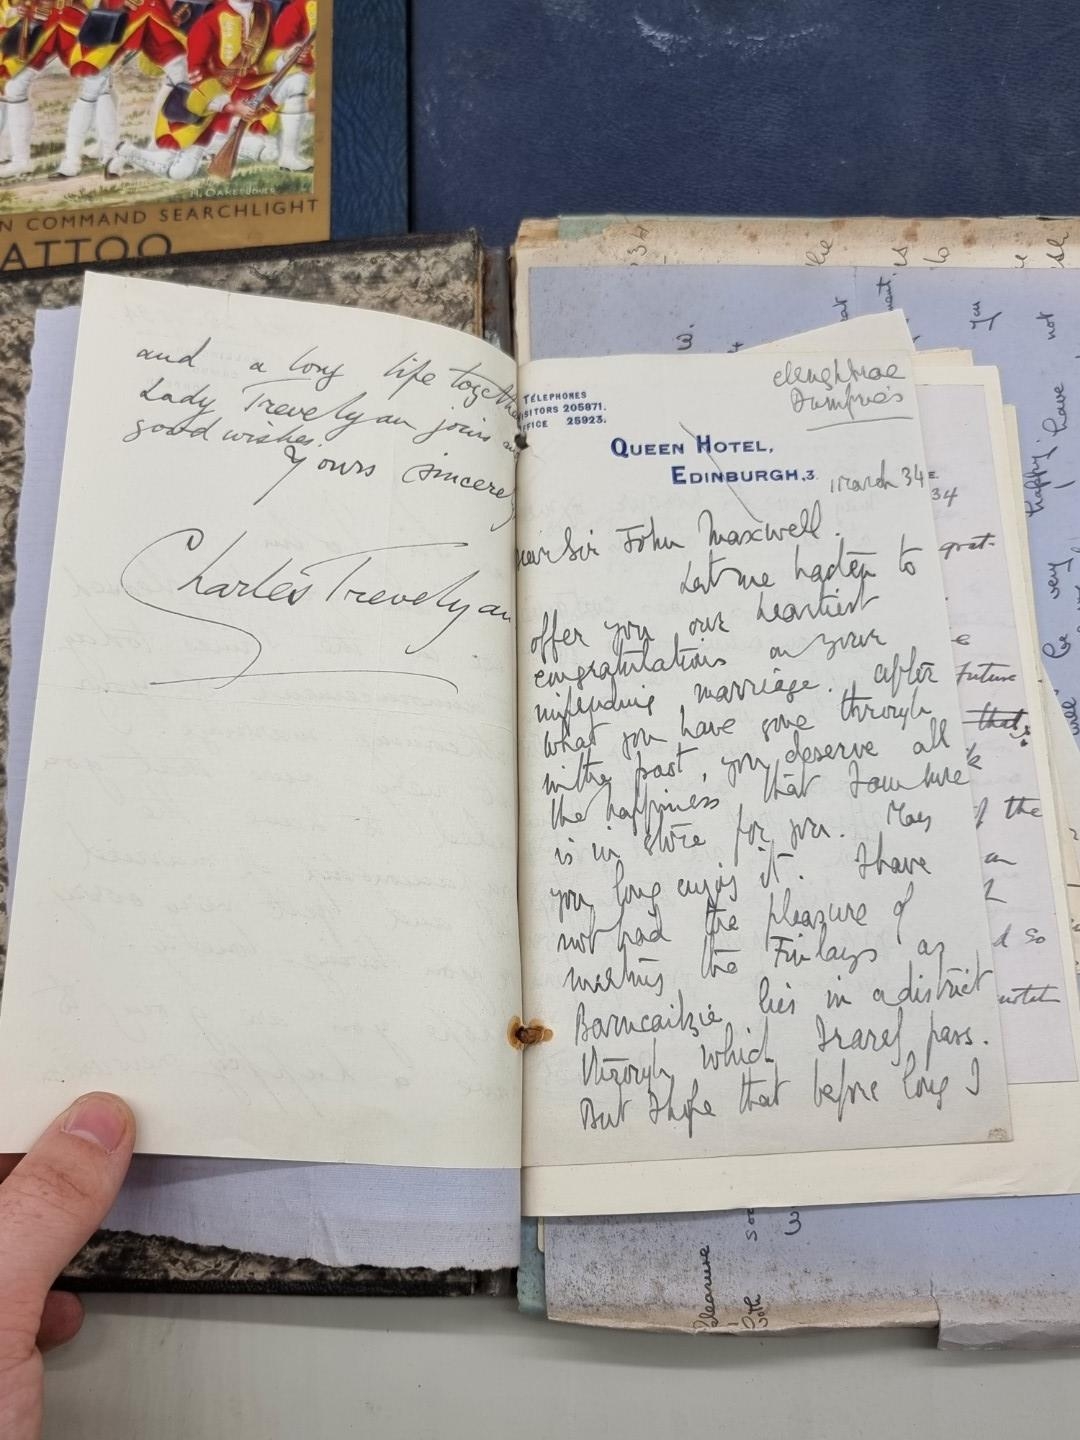 N COMMAND SEARCHLIGHT
ATTOO
and a long life together
Lady Trevelyan joins
good wishes.
Yours sincerely
Charles Trevelyan
TELEPHONES
VISITORS 205871.
OFFICE 25923.
Dumfries
QUEEN HOTEL,
EDINBURGH,3.
March 34
34
Dear Sir John Maxwell.
Let me hasten to
offer you our heartiest
congratulations on your
impending marriage. After
what you have gone through
in the past, you deserve all
the happiness that I am sure
is in store for you. May
you long enjoy it. I have
not had the pleasure of
meeting the Finlays as
Barncailzie lies in a district
through which I rarely pass.
But I hope that before long I
future
that
of the
an
d so
very
happy
have
not
Pleasure
both